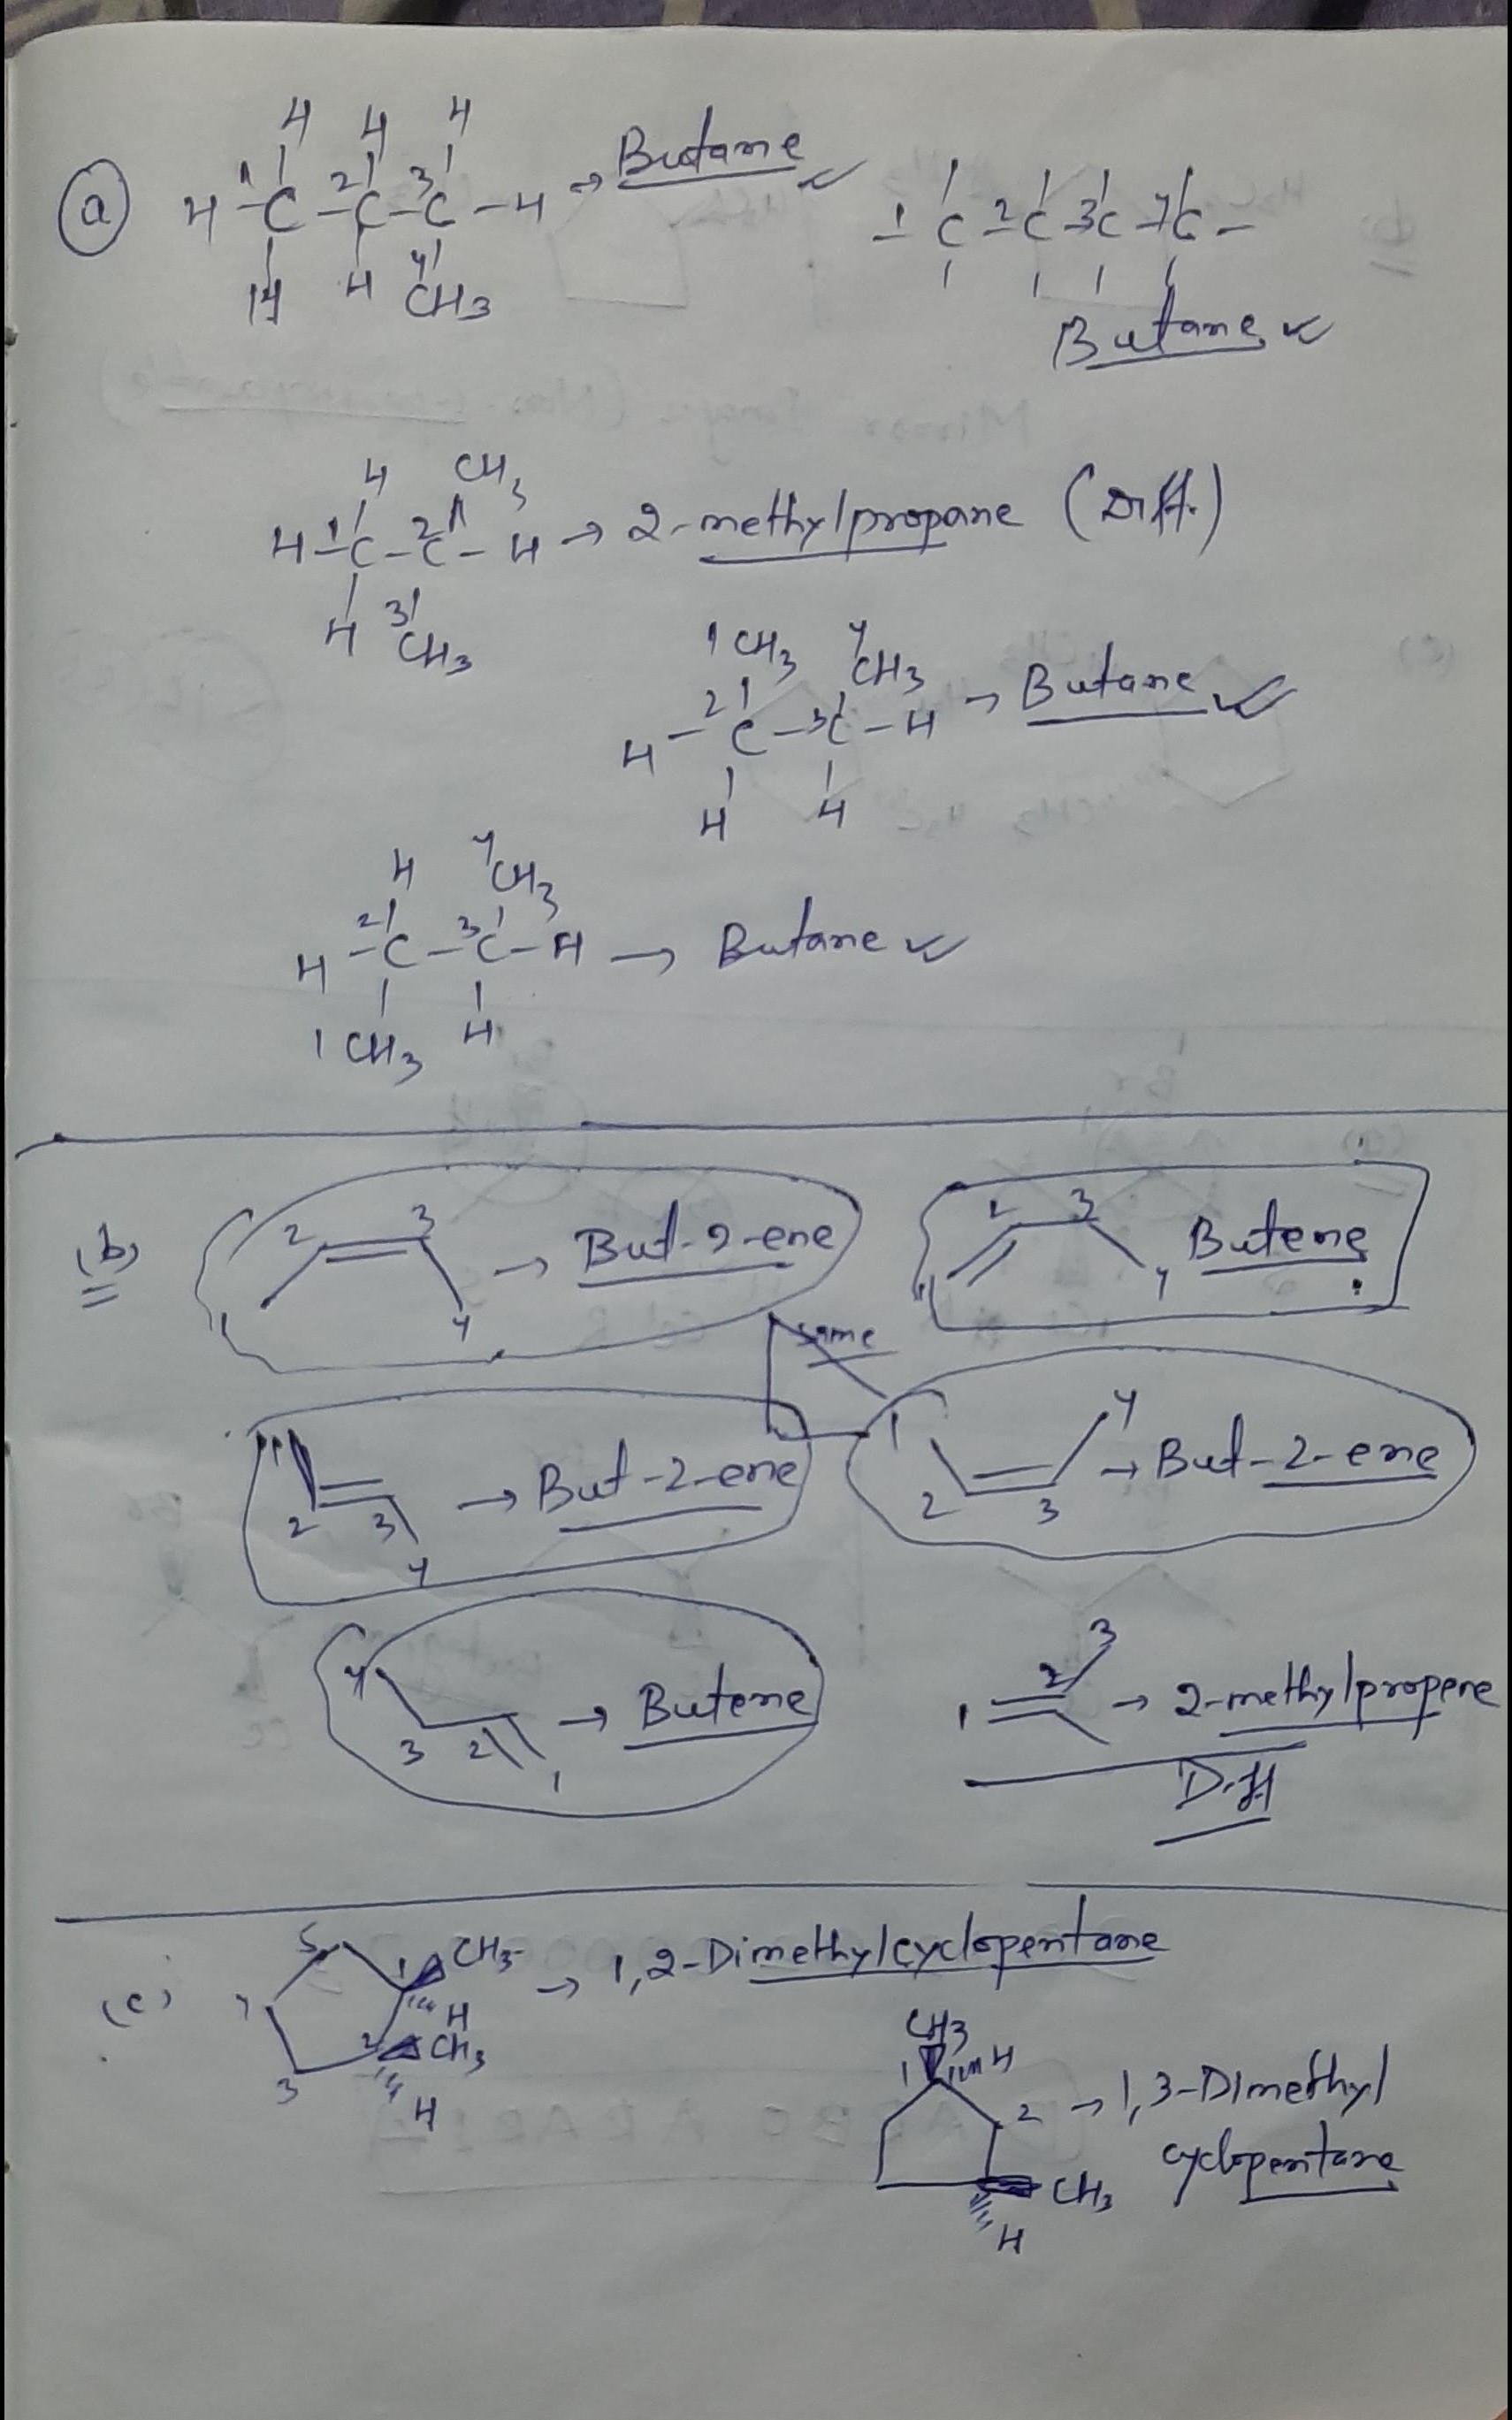 (a) H H H
H - 1C - 2C - 3C - H → Butane
H H 4CH3
- 1C - 2C - 3C - 4C -
Butane
H CH3
H - 1C - 2C - H → 2-methylpropane (Diff.)
H 3CH3
1CH3 4CH3
H - 2C - 3C - H → Butane
H H
H 4CH3
H - 2C - 3C - H → Butane
1CH3 H
(b) 1 2 3 4 → But-2-ene
1 2 3 4 Butene
same
1 2 3 4 → But-2-ene
1 2 3 4 → But-2-ene
4 3 2 1 → Butene
1 2 3 → 2-methylpropene
Diff
(c) 5 1 CH3 → 1,2-Dimethylcyclopentane
4 H
2 CH3
3 H
CH3
1 H
2 → 1,3-Dimethyl
cyclopentane
CH3
H